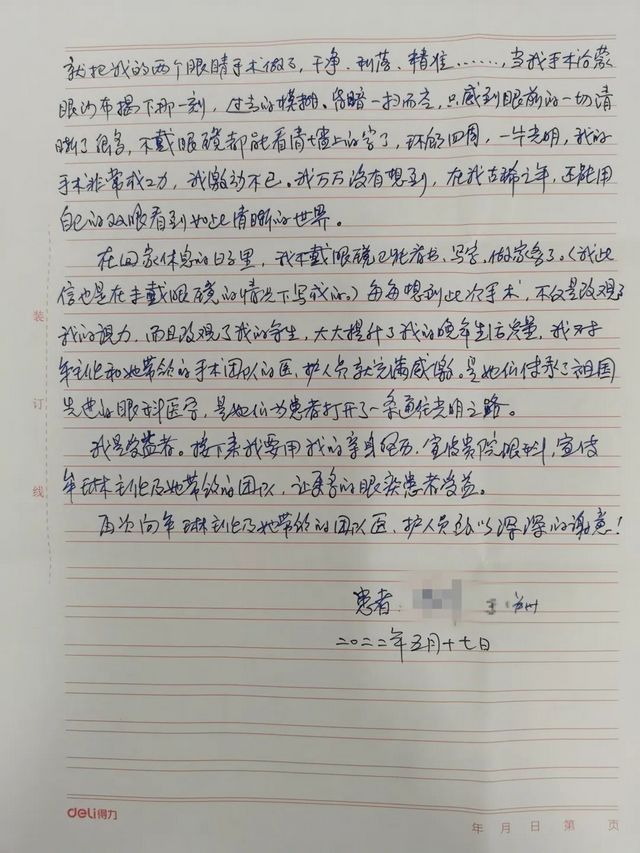 就把我的两个眼睛手术做了，干净、利落、精准……，当我手术后蒙
眼沙布揭下那一刻，过去的模糊、昏暗一扫而空，只感到眼前的一切清
晰了很多，不戴眼镜都能看清墙上的字了，环顾四周，一片光明，我的
手术非常成功，我激动不已。我万万没有想到，在我古稀之年，还能用
自己的双眼看到如此清晰的世界。
在回家休息的日子里，我不戴眼镜已能看书、写字、做家务了。（我此
信也是在未戴眼镜的情况下写成的。）每每想到此次手术，不仅是改观了
我的视力，而且改观了我的余生，大大提升了我的晚年生活质量，我对
牟主任和她带领的手术团队的医、护人员就充满感激。是她们传承了祖国
先进的眼科医学，是她们为患者打开了一条通往光明之路。
我是受益者。接下来我要用我的亲身经历，宣传贵院眼科，宣传
牟琳主任及她带领的团队，让更多的眼疾患者受益。
再次向牟琳主任及她带领的团队医、护人员致以深深的谢意！
患者：
二〇二二年五月十七日
装
订
线
deli得力
年 月 日 第 页